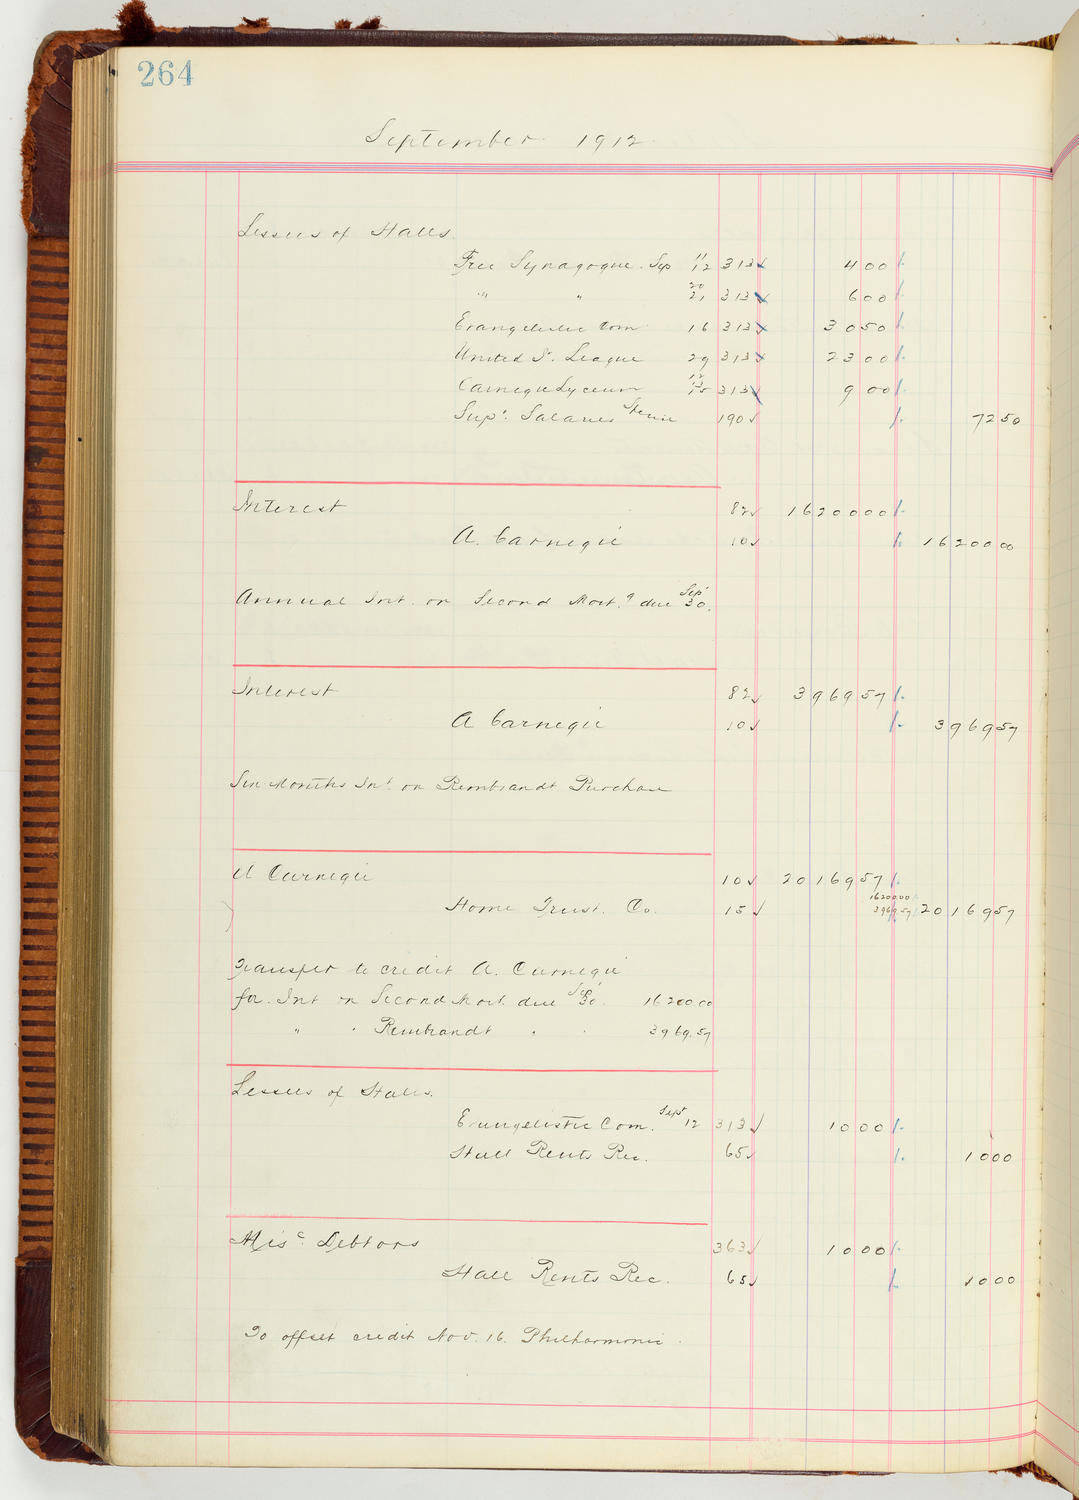 264
September 1912
Lessees of Halls.
Free Synagogue. Sep 11 12 313 ✓ 400
" " 20 21 313 ✓ 600
Evangelistic Com 16 313 ✓ 3050
United I. League 29 313 ✓ 2300
Carnegie Lyceum 12 13 15 313 ✓ 900
Supt. Salaries 190 ✓ 7250
Interest 82 ✓ 1620000
A. Carnegie 10 ✓ 1620000
Annual Int. on Second Mort.g due Sep' 30.
Interest 82 ✓ 396957
A Carnegie 10 ✓ 396957
Six Months Int. on Rembrandt Purchase
A Carnegie 10 ✓ 2016957
Home Trust. Co. 15 ✓ 1620000 396957 2016957
Transfer to credit A. Carnegie
for Int on Second Mort. due Sep' 30. 16200.00
" " Rembrandt " " 3969.57
Lessees of Halls.
Evangelistic Com. Sept 12 313 ✓ 1000
Hall Rents Rec. 65 ✓ 1000
Misc. Debtors 363 ✓ 1000
Hall Rents Rec. 65 ✓ 1000
To offset credit Nov. 16. Philharmonic.